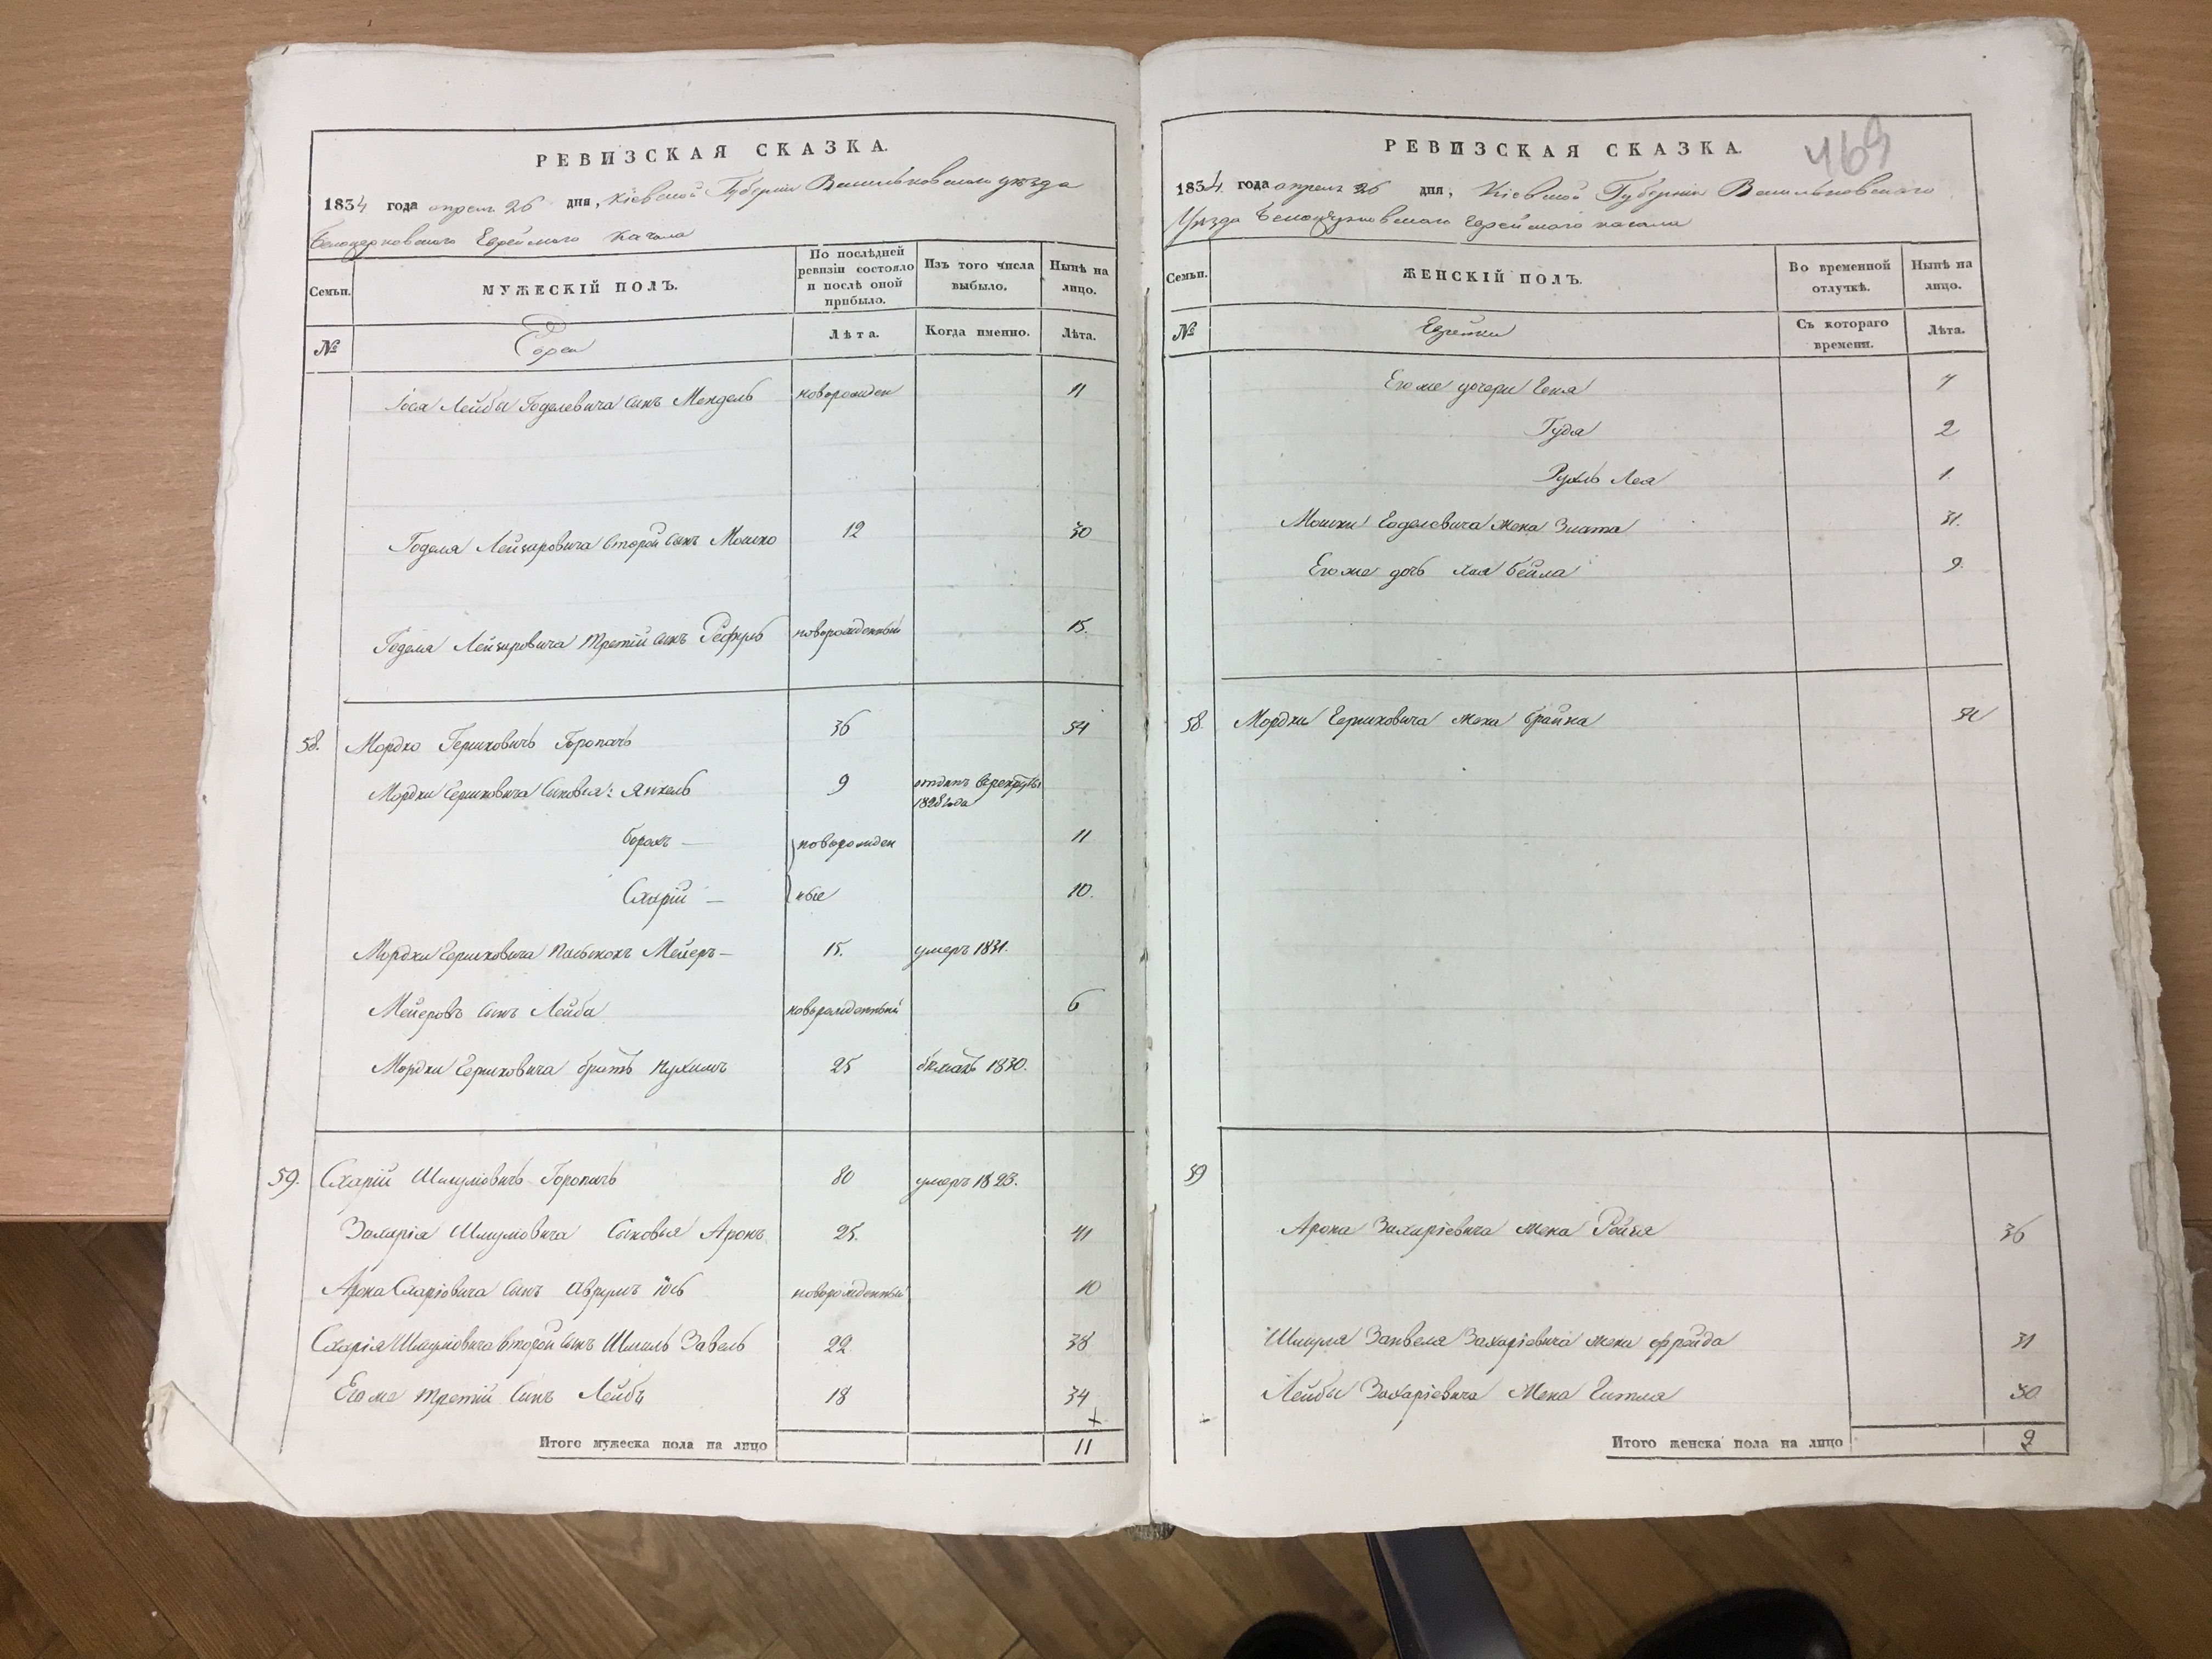 РЕВИЗСКАЯ СКАЗКА.
1834 года апреля 26 дня, Кіевской Губерніи Васильковского уѣзда
Белоцерковского Еврейского Кагала
Семьи.
МУЖЕСКІЙ ПОЛЪ.
По послѣдней ревизіи состояло и послѣ оной прибыло.
Изъ того числа выбыло.
Нынѣ на лицо.
№
Евреи
Лѣта.
Когда именно.
Лѣта.
Іося Лейбы Годелевича сынъ Мендель новорожден 11
Годеля Лейзаровича второй сынъ Мошко 12 30
Годеля Лейзаровича третій сынъ новорожденный 15.
58. Мордко Гершковичъ Горопачъ 36 54
Мордки Гершковича сыновья: Янкель 9 отданъ в рекруты 1828 года
Борохъ — новорожден 11
Схарій — ные 10.
Мордки Гершковича Мейеръ — 15. умеръ 1831.
Мейеровъ сынъ Лейба новорожденный 6
Мордки Гершковича братъ Нухимъ 25 бежалъ 1830.
59. Схарій Шмулiовичъ Горопачъ 80 умеръ 1823.
Захарія Шмулiовича Сыновья Аронъ 25. 41
Арона Схаріовича сынъ Аврумъ Іось новорожденный 10
Схарія Шмулiовича второй сынъ Шмиль Завель 22 38
Его же третій сынъ Лейба 18 34
Итого мужеска пола на лицо 11
РЕВИЗСКАЯ СКАЗКА.
469
1834 года апреля 26 дня, Кіевской Губерніи Васильковского
Уѣзда Белоцерковского Еврейского кагала
Семьи.
ЖЕНСКІЙ ПОЛЪ.
Во временной отлучкѣ.
Нынѣ на лицо.
№
Еврейки
Съ котораго времени.
Лѣта.
Его же дочери Геня
Гудя 2
Рухль Лея 1.
Мошки Годелевича жена Злата 31.
Его же дочь Хая Бейла 9.
58. Мордки Гершковича жена Брайна
59
Арона Захаріевича жена Ройза 36
Шмуля Занвеля Захаріевича жена Фрейда 31
Лейбы Захаріевича жена Гитля 30
Итого женска пола на лицо 9